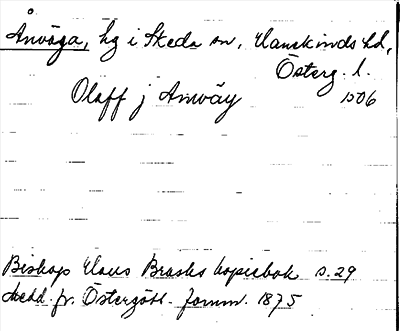 Ånväga, hg i Skeda sn, Hanekinds hd,
Österg. l.
Olaff j Anwäy 1506
Biskop Hans Brasks kopiebok s. 29
Medd. fr. Östergötl. fornm. 1875